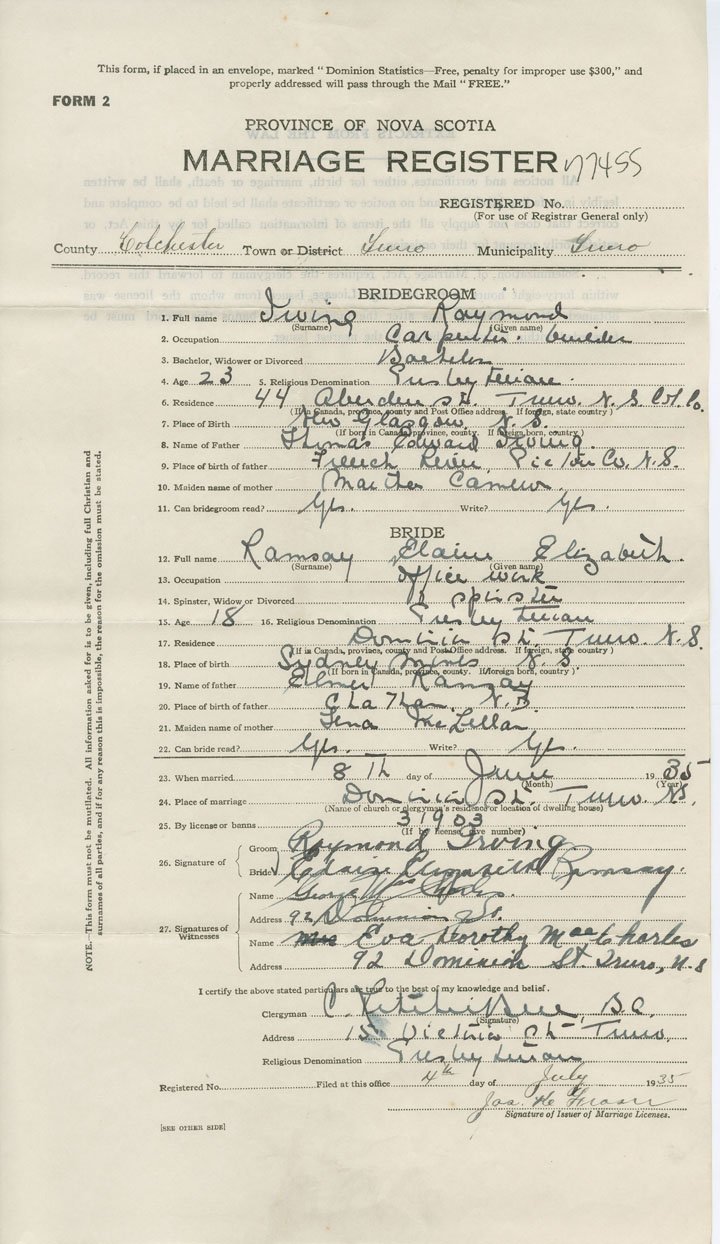 This form, if placed in an envelope, marked "Dominion Statistics—Free, penalty for improper use $300," and
properly addressed will pass through the Mail "FREE."
FORM 2
PROVINCE OF NOVA SCOTIA
MARRIAGE REGISTER 77455
REGISTERED No.
(For use of Registrar General only)
County Colchester Town or District Truro Municipality Truro
BRIDEGROOM
1. Full name Irving Raymond
(Surname) (Given name)
2. Occupation Carpenter. builder
3. Bachelor, Widower or Divorced Bachelor
4. Age 23 5. Religious Denomination Presbyterian.
6. Residence 44 Aberdeen St. Truro N.S. Col. Co.
(If in Canada, province, county and Post Office address. If foreign, state country)
7. Place of Birth New Glasgow N.S.
(If born in Canada, province, county. If foreign born, country.)
8. Name of Father Thomas Edward Irving.
9. Place of birth of father French River, Pictou Co. N.S.
10. Maiden name of mother Martha Cameron.
11. Can bridegroom read? Yes. Write? Yes.
BRIDE
12. Full name Ramsay Elaine Elizabeth.
(Surname) (Given name)
13. Occupation office work
14. Spinster, Widow or Divorced spinster
15. Age 18 16. Religious Denomination Presbyterian
17. Residence Dominion St. Truro. N.S.
(If in Canada, province, county and Post Office address. If foreign, state country)
18. Place of birth Sydney Mines N.S.
(If born in Canada, province, county. If foreign born, country.)
19. Name of father Elmer Ramsay
20. Place of birth of father Chatham, N.B.
21. Maiden name of mother Lena McLellan
22. Can bride read? Yes. Write? Yes.
23. When married. 8Th day of June 1935
(Month) (Year)
24. Place of marriage Dominion St. Truro N.S.
(Name of church or clergyman's residence or location of dwelling house)
25. By license or banns 31903
(If by license, give number)
26. Signature of
Groom Raymond Irving
Bride Elaine Elizabeth Ramsay.
27. Signatures of Witnesses
Name George
Address 92 Dominion St.
Name Mrs Eva Dorothy MacCharles
Address 92 Dominion St. Truro, N.S
I certify the above stated particulars are true to the best of my knowledge and belief.
Clergyman C.
(Signature)
Address 15 Victoria St Truro.
Religious Denomination Presbyterian
Registered No. Filed at this office 4th day of July 1935
Jas. Fraser
Signature of Issuer of Marriage Licenses.
[SEE OTHER SIDE]
NOTE.—This form must not be mutilated. All information asked for is to be given, including full Christian and
surnames of all parties, and if for any reason this is impossible, the reason for the omission must be stated.